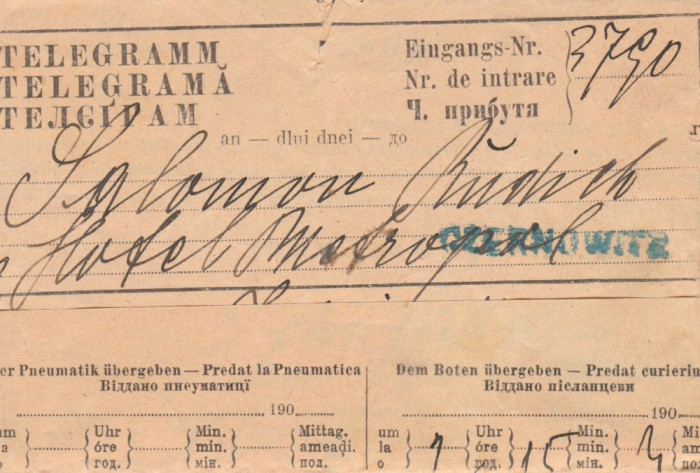 TELEGRAMM
TELEGRAMĂ
ТЕЛЄҐРАМ
Eingangs-Nr.
Nr. de intrare
Ч. прибутя
3790
an — dlui dnei — до
Salomon Rudich
Hotel Metropol
CZERNOWITZ
er Pneumatik übergeben — Predat la Pneumatica
Віддано пневматиції
190
um Uhr Min. Mittag.
a óre min. ameadi.
год. мін. пол.
Dem Boten übergeben — Predat curieriu
Віддано післанцеви
190
um Uhr Min. Mi
la 7 óre 15 min. a
о год. мін. по